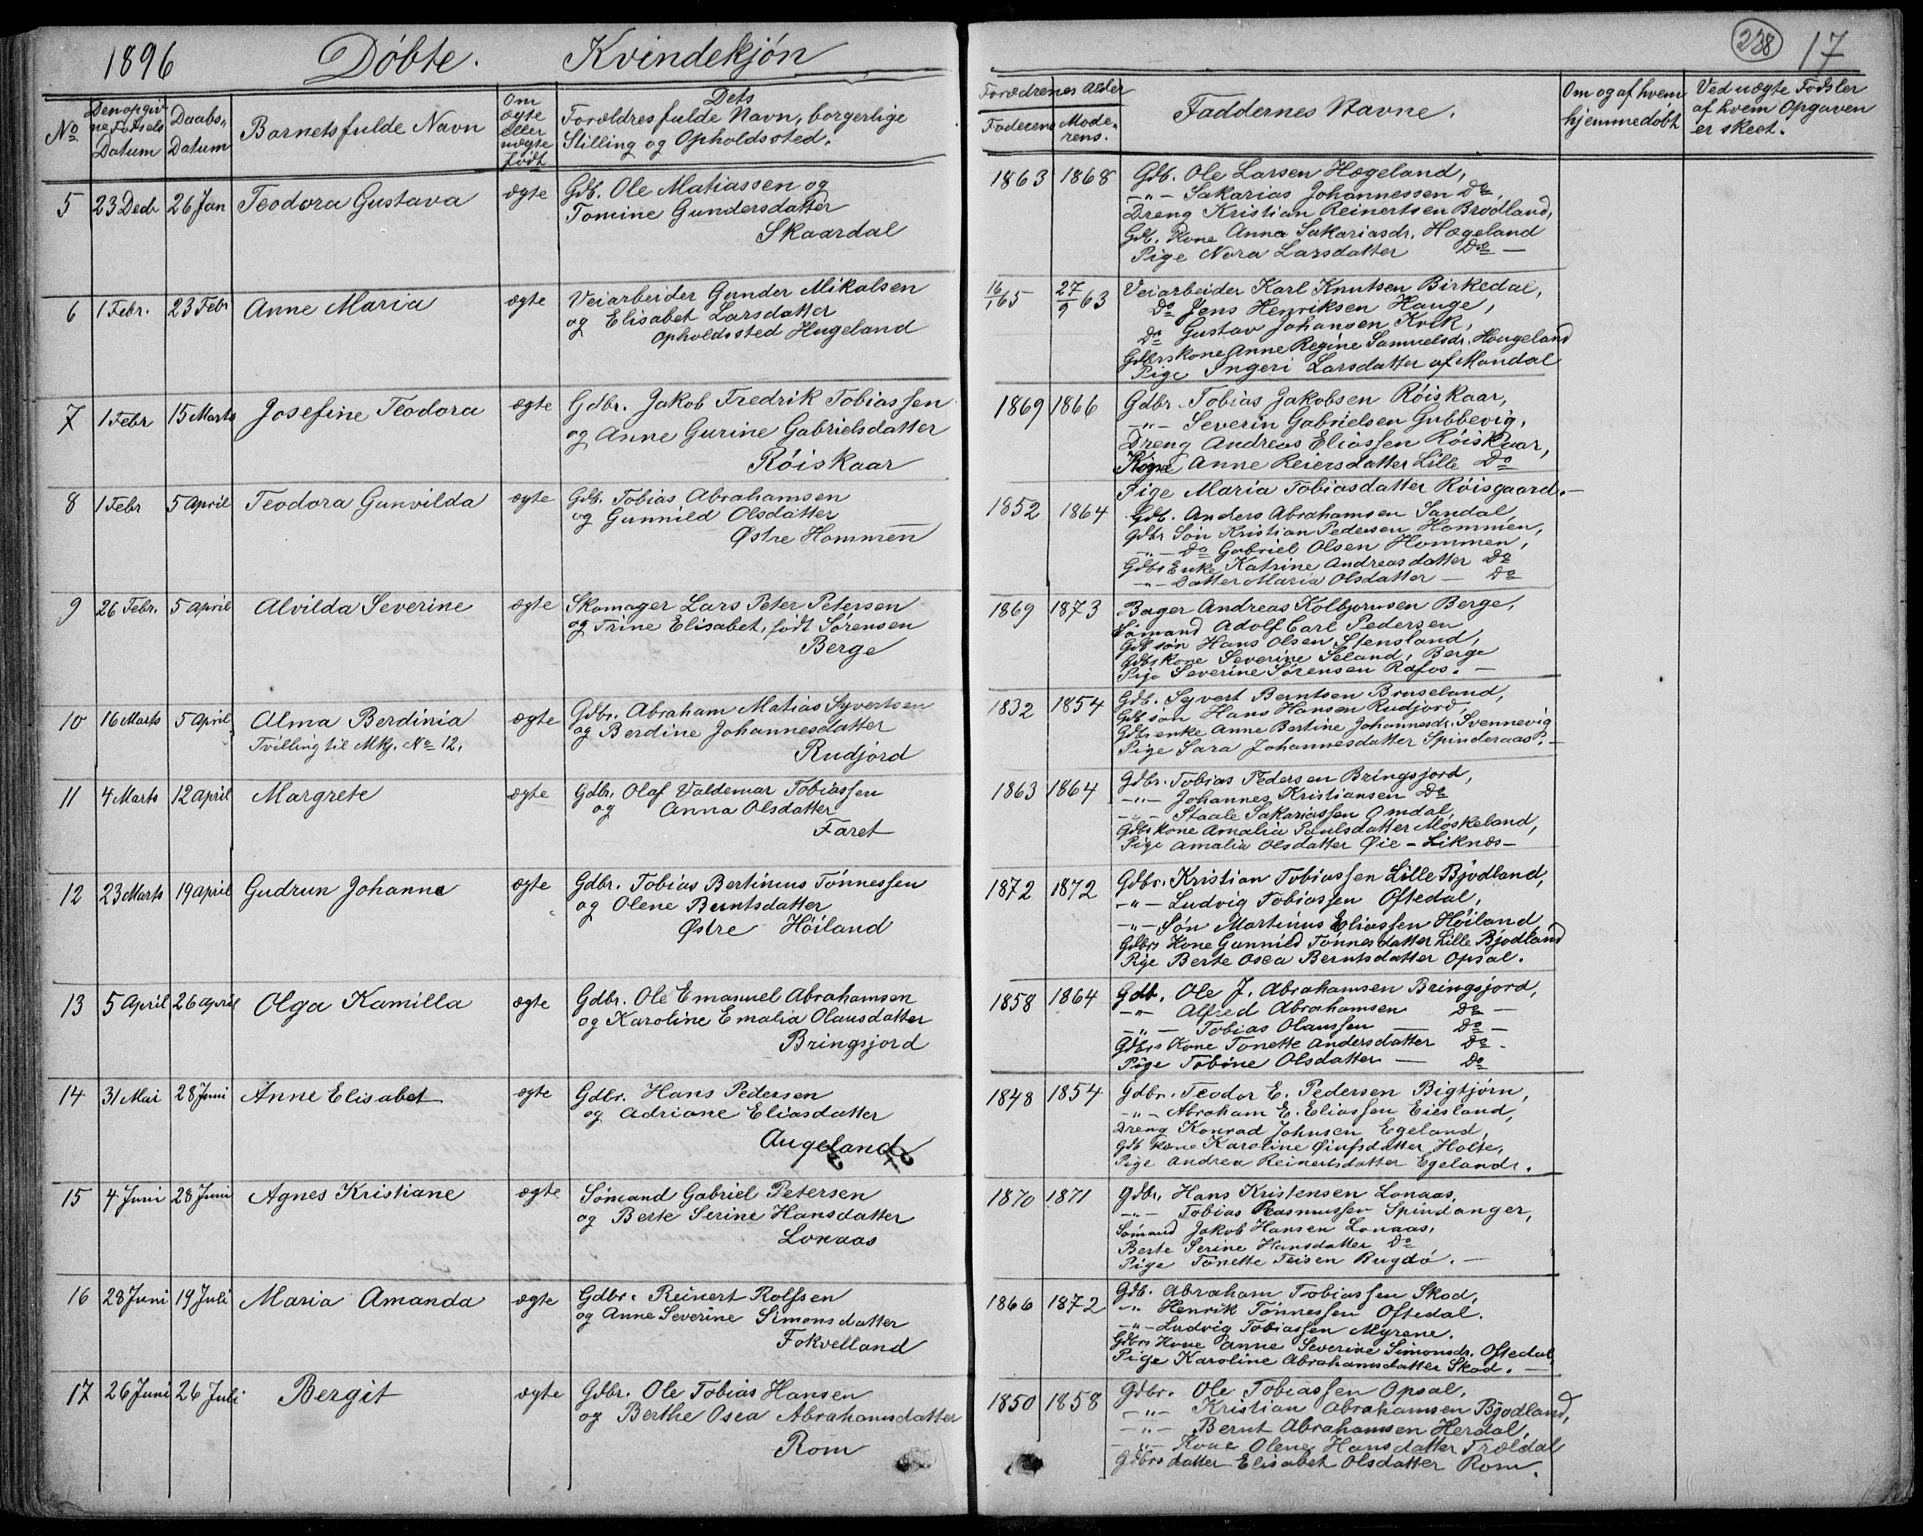 1896 Döbte. Kvindekjön
238 17
No
Den opgivne Fødsels Datum
Daabs-Datum
Barnets fulde Navn
Om ægte eller uægte födt
Dets Forældres fulde Navn, borgerlige Stilling og Opholdssted.
Forædrenes Alder
Faderens Moderens.
Faddernes Navne.
Om og af hvem hjemmedøbt
Ved uægte Födsler af hvem Opgaven er skeet.
5 23 Decb 26 Jan Teodora Gustava ægte
Gdb. Ole Matiassen og
Tomine Gundersdatter
Skaardal
1863 1868
Gdb. Ole Larsen Hægeland,
-"- Sakarias Johannessen Do
Dreng Kristian Reinertsen Brödland,
Gdb. Kone Anna Sakariasdr. Hægeland
Pige Nora Larsdatter Do —
6 1 Febr. 23 Febr Anne Maria ægte
Veiarbeider Gunder Mikalsen
og Elisabet Larsdatter
Opholdssted Hugeland
16/1 65 27/9 63
Veiarbeider Karl Knutsen Birkedal,
Do Jens Henriksen Hauge,
Do Gustav Johansen Kvik,
Gdbrskone Anne Regine Samuelsdr. Hougeland
Pige Ingeri Larsdatter af Mandal
7 1 Febr 15 Marts Josefine Teodora ægte
Gdbr. Jakob Fredrik Tobiassen
og Anne Gurine Gabrielsdatter
Röiskaar
1869 1866
Gdbr. Tobias Jakobsen Röiskaar,
-"- Severin Gabrielsen Gubbevig,
Dreng Andreas Eliassen Röiskaar,
Kone Anne Reiersdatter Lille Do
Pige Maria Tobiasdatter Röisgaard. —
8 1 Febr 5 April Teodora Gunvilda ægte
Gdb. Tobias Abrahamsen
og Gunnild Olsdatter
Østre Hommen
1852 1864
Gdb. Anders Abrahamsen Sandal,
Gdbr Sön Kristian Pedersen Hommen,
-"- Do Gabriel Olsen Hommen,
Gdbr Enke Katrine Andreasdatter Do
-"- Datter Maria Olsdatter — Do
9 26 Febr. 5 April Alvilda Severine ægte
Skomager Lars Peter Petersen
og Trine Elisabet, födt Sörensen
Berge
1869 1873
Bager Andreas Kolbjornsen Berge,
Sömand Adolf Carl Pedersen
Gdb sön Hans Olsen Stensland,
Gdbs kone Severine Seland, Berge
Pige Severine Sörensen Rafos. —
10 16 Marts 5 April Alma Berdinia ægte
Tvilling til Mkj. No 12.
Gdbr. Abraham Matias Syvertsen
og Berdine Johannesdatter
Rudjord
1832 1854
Gdb. Syvert Berntsen Bruseland,
Gdb sön Hans Hansen Rudjord,
Gdbs enke Anne Bertine Johannesdr. Svennevig
Pige Sara Johannesdatter Spinderaas. —
11 4 Marts 12 April Margrete ægte
Gdbr. Olaf Valdemar Tobiassen
og Anna Olsdatter
Faret
1863 1864
Gdbr. Tobias Pedersen Bringsjord,
-"- Johannes Kristiansen Do
-"- Staale Sakariassen Omdal,
Gdbs kone Amalia Paulsdatter Möskeland,
Pige Amalia Olsdatter Øie - Liknæs -
12 23 Marts 19 April Gudrun Johanne ægte
Gdbr. Tobias Bertinius Tönnessen
og Olene Berntsdatter
Østre Höiland
1872 1872
Gdbr. Kristian Tobiassen Lille Bjodland,
-"- Ludvig Tobiassen Oftedal,
-"- Sön Martinius Eliassen Höiland,
Gdbrs Kone Gunnild Tönnesdatter Lille Bjodland
Pige Berte Osea Berntsdatter Opsal.
13 5 April 26 April Olga Kamilla ægte
Gdbr. Ole Emanuel Abrahamsen
og Karoline Emalia Olausdatter
Bringsjord
1858 1864
Gdb. Ole J. Abrahamsen Bringsjord,
-"- Alfred Abrahamsen Do —
-"- Tobias Olaussen — Do —
Gdbrs Kone Tonette Andersdatter Do -
Pige Tobine Olsdatter — Do
14 31 Mai 28 Juni Anne Elisabet ægte
Gdbr. Hans Pedersen
og Adriane Eliasdatter
Augeland
1848 1854
Gdbr. Teodor E. Pedersen Bigtjörn,
-"- Abraham E. Eliassen Eiesland,
Dreng Konrad Johnsen Egeland,
Gdb Kone Karoline Øiufsdatter Holte,
Pige Andrea Reinertsdatter Egeland.
15 4 Juni 28 Juni Agnes Kristiane ægte
Sömand Gabriel Petersen
og Berte Serine Hansdatter
Lonaas
1870 1871
Gdbr. Hans Kristensen Lonaas,
-"- Tobias Rasmussen Spindanger,
Sömand Jakob Hansen Lonaas,
Berte Serine Hansdatter Do
Pige Tönette Teisen Rugdö. —
16 28 Juni 19 Juli Maria Amanda ægte
Gdbr. Reinert Rolfsen
og Anne Severine Simonsdatter
Fokvelland
1866 1872
Gdb. Abraham Tobiassen Skod,
-"- Henrik Tönnessen Oftedal.
-"- Ludvig Tobiassen Myrene.
Gdbrs Kone Anne Severine Simonsdr. Oftedal,
Pige Karoline Abrahamsdatter Skod. —
17 26 Juni 26 Juli Bergit ægte
Gdbr. Ole Tobias Hansen
og Berthe Osea Abrahamsdatter
Rom
1850 1858
Gdbr. Ole Tobiassen Opsal,
-"- Kristian Abrahamsen Bjodland,
-"- Bernt Abrahamsen Herdal,
-"- Kone Olene Hansdatter Trældal
Gdbrs datter Elisabet Olsdatter Rom.